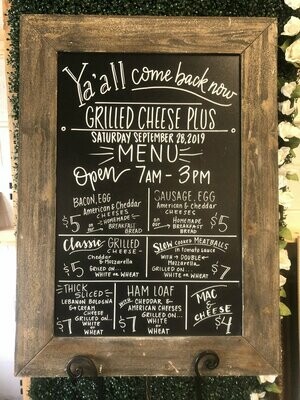 Ya'all come back now
GRILLED CHEESE PLUS
SATURDAY SEPTEMBER 28, 2019
MENU
Open 7AM - 3PM
BACON, EGG
American & Cheddar
CHEESES
$5 on our HOMEMADE
BREAKFAST
BREAD
SAUSAGE, EGG
American & Cheddar
CHEESES
on our HOMEMADE
BREAKFAST
BREAD $5
Classic GRILLED
CHEESE
Cheddar
& Mozzarella
$5 GRILLED ON...
WHITE OR WHEAT
SLOW COOKED MEATBALLS
in tomato sauce
WITH DOUBLE
Mozzarella
GRILLED ON... $7
WHITE OR WHEAT
THICK
SLICED
LEBANON BOLOGNA
& CREAM
CHEESE
GRILLED ON...
$7 WHITE
OR
WHEAT
HAM LOAF
WITH CHEDDAR &
AMERICAN CHEESES
GRILLED ON...
$7 WHITE
OR
WHEAT
MAC
& CHEESE
$4